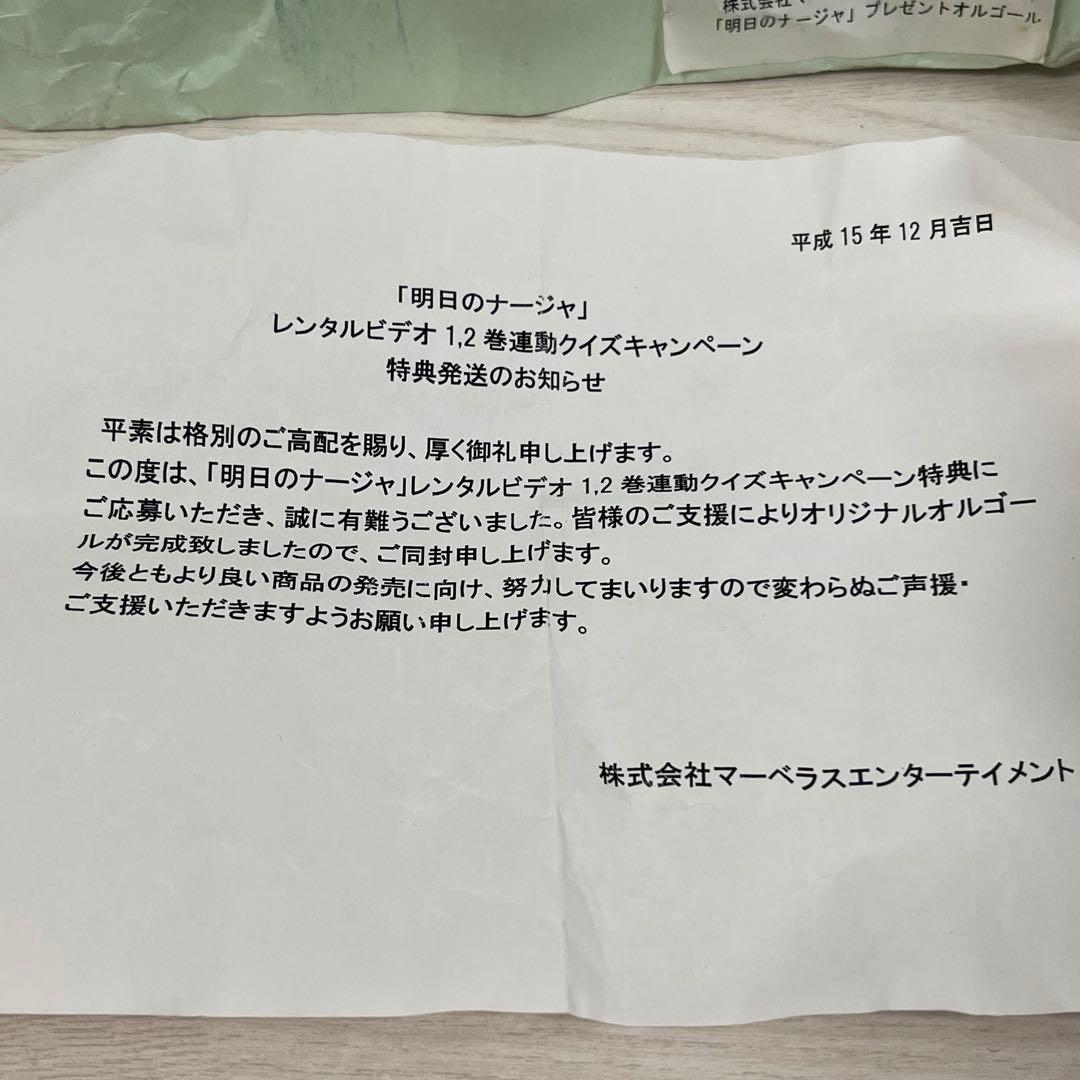 株式会社マー
「明日のナージャ」プレゼントオルゴール
平成15年12月吉日
「明日のナージャ」
レンタルビデオ1,2巻連動クイズキャンペーン
特典発送のお知らせ
平素は格別のご高配を賜り、厚く御礼申し上げます。
この度は、「明日のナージャ」レンタルビデオ1,2巻連動クイズキャンペーン特典に
ご応募いただき、誠に有難うございました。皆様のご支援によりオリジナルオルゴー
ルが完成致しましたので、ご同封申し上げます。
今後ともより良い商品の発売に向け、努力してまいりますので変わらぬご声援・
ご支援いただきますようお願い申し上げます。
株式会社マーベラスエンターテイメント